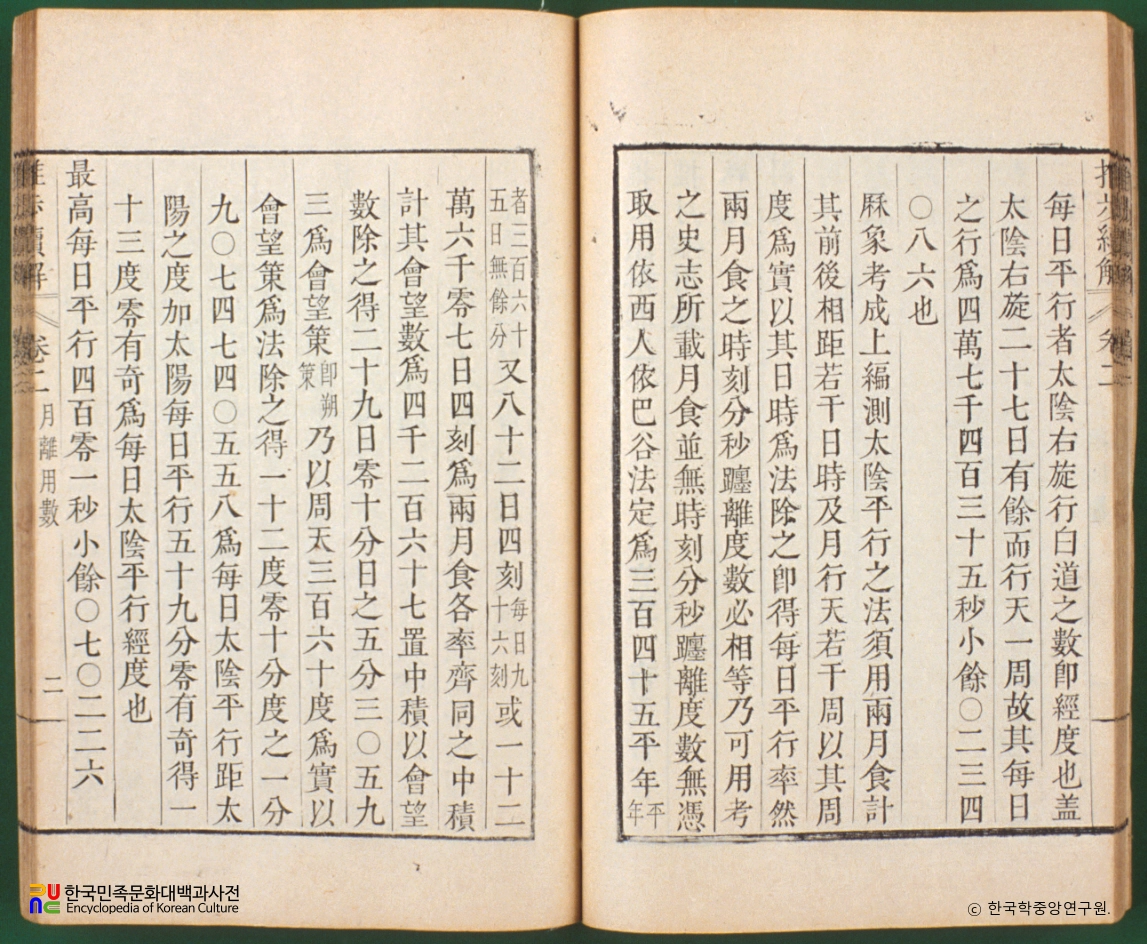 每日平行者太陰右旋行白道之數卽經度也盖
太陰右旋二十七日有餘而行天一周故其每日
之行爲四萬七千四百三十五秒小餘〇二三四
〇八六也
厤象考成上編測太陰平行之法須用兩月食計
其前後相距若干日時及月行天若干周以其周
度爲實以其日時爲法除之卽得每日平行率然
兩月食之時刻分秒躔離度數必相等乃可用考
之史志所載月食並無時刻分秒躔離度數無憑
取用依西人依巴谷法定爲三百四十五平年平年
者三百六十五日無餘分又八十二日四刻每日九十六刻或一十二
萬六千零七日四刻爲兩月食各率齊同之中積
計其會望數爲四千二百六十七置中積以會望
數除之得二十九日零十分日之五分三〇五九
三爲會望策卽朔策乃以周天三百六十度爲實以
會望策爲法除之得一十二度零十分度之一分
九〇七四四七四〇五五八爲每日太陰平行距太
陽之度加太陽每日平行五十九分零有奇得一
十三度零有奇爲每日太陰平行經度也
最高每日平行四百零一秒小餘〇七〇二二六
卷二 月離用數 二
한국민족문화대백과사전
Encyclopedia of Korean Culture
ⓒ 한국학중앙연구원.